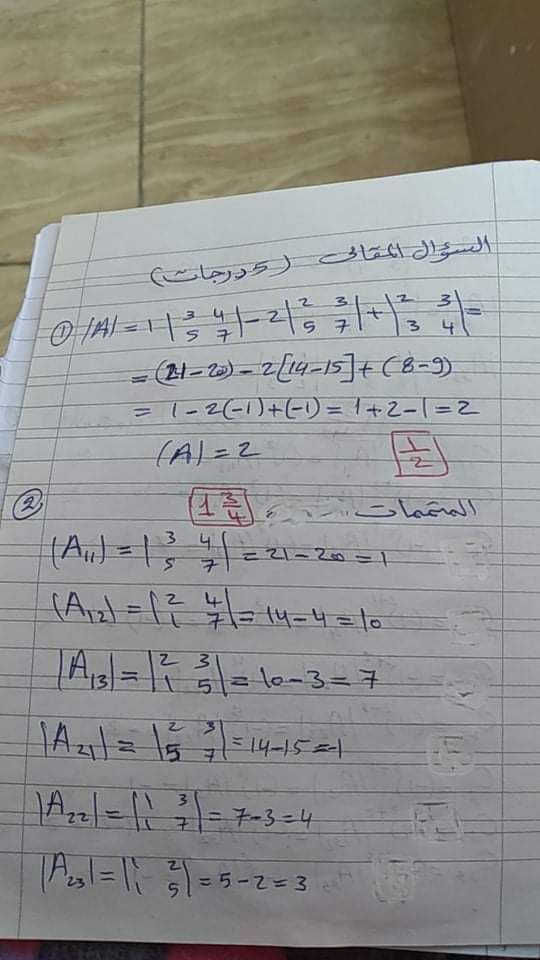 السؤال المقالى (5 درجات)
① |A| = 1 |3 4 5 7| - 2 |2 3 5 7| + |2 3 3 4| =
= (21-20) - 2[14-15] + (8-9)
= 1 - 2(-1) + (-1) = 1+2-1 = 2
(A) = 2 1/2
② المتممات 1 3/4
|A11) = |3 4 5 7| = 21-20 = 1
(A12) = |2 4 1 7| = 14-4 = 10
|A13| = |2 3 1 5| = 10-3 = 7
|A21| = |2 3 5 7| = 14-15 = -1
|A22| = |1 3 1 7| = 7-3 = 4
|A23| = |1 2 1 5| = 5-2 = 3